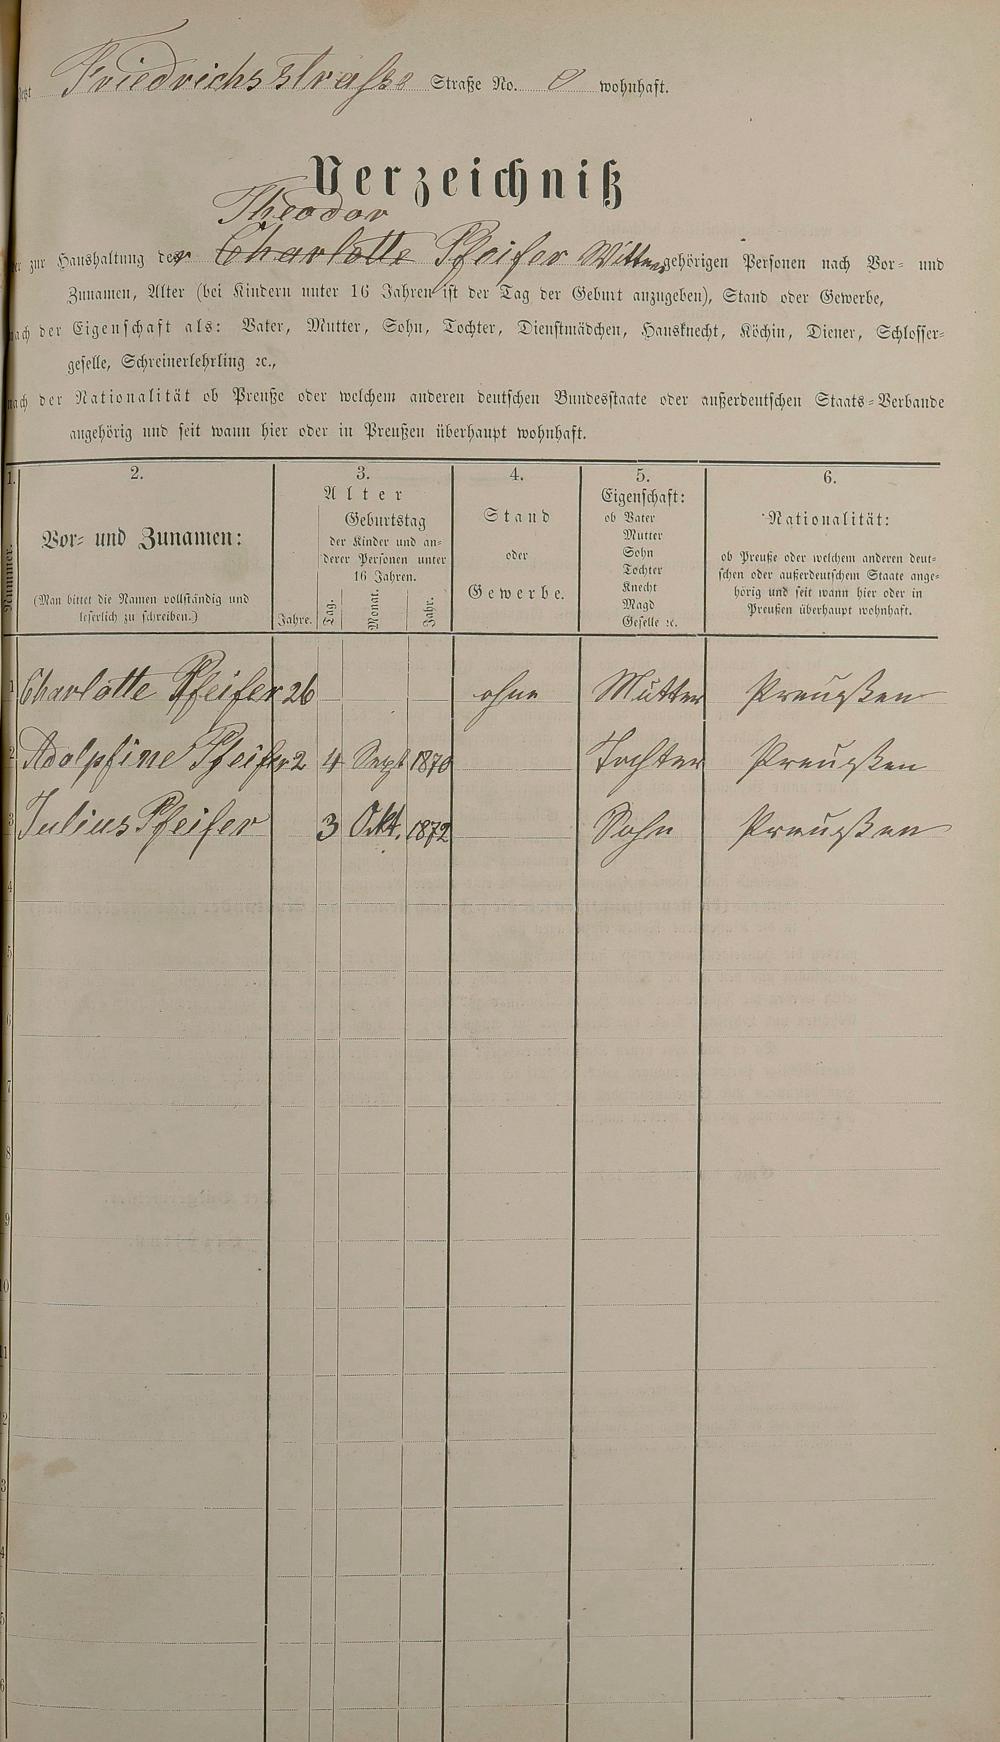 Friedrichsstraße Straße No. wohnhaft.
Verzeichniß
Theodor
zur Haushaltung der Charlotte Pfeifer Wittwe gehörigen Personen nach Vor- und
Zunamen, Alter (bei Kindern unter 16 Jahren ist der Tag der Geburt anzugeben), Stand oder Gewerbe,
nach der Eigenschaft als: Vater, Mutter, Sohn, Tochter, Dienstmädchen, Hausknecht, Köchin, Diener, Schlosser-
geselle, Schreinerlehrling ꝛc.,
nach der Nationalität ob Preuße oder welchem anderen deutschen Bundesstaate oder außerdeutschen Staats-Verbande
angehörig und seit wann hier oder in Preußen überhaupt wohnhaft.
1. 2. 3. 4. 5. 6.
Nummer.
Vor- und Zunamen:
(Man bittet die Namen vollständig und
leserlich zu schreiben.)
Alter
Jahre.
Geburtstag
der Kinder und an-
derer Personen unter
16 Jahren.
Tag. Monat. Jahr.
Stand
oder
Gewerbe.
Eigenschaft:
ob Vater
Mutter
Sohn
Tochter
Knecht
Magd
Geselle ꝛc.
Nationalität:
ob Preuße oder welchem anderen deut-
schen oder außerdeutschem Staate ange-
hörig und seit wann hier oder in
Preußen überhaupt wohnhaft.
1 Charlotte Pfeifer 26 ohne Mutter Preußen
2 Adolphine Pfeifer 2 4 Sept 1870 Tochter Preußen
3 Julius Pfeifer 3 Okt. 1872 Sohn Preußen
4
5
6
7
8
9
10
11
2
3
4
5
6